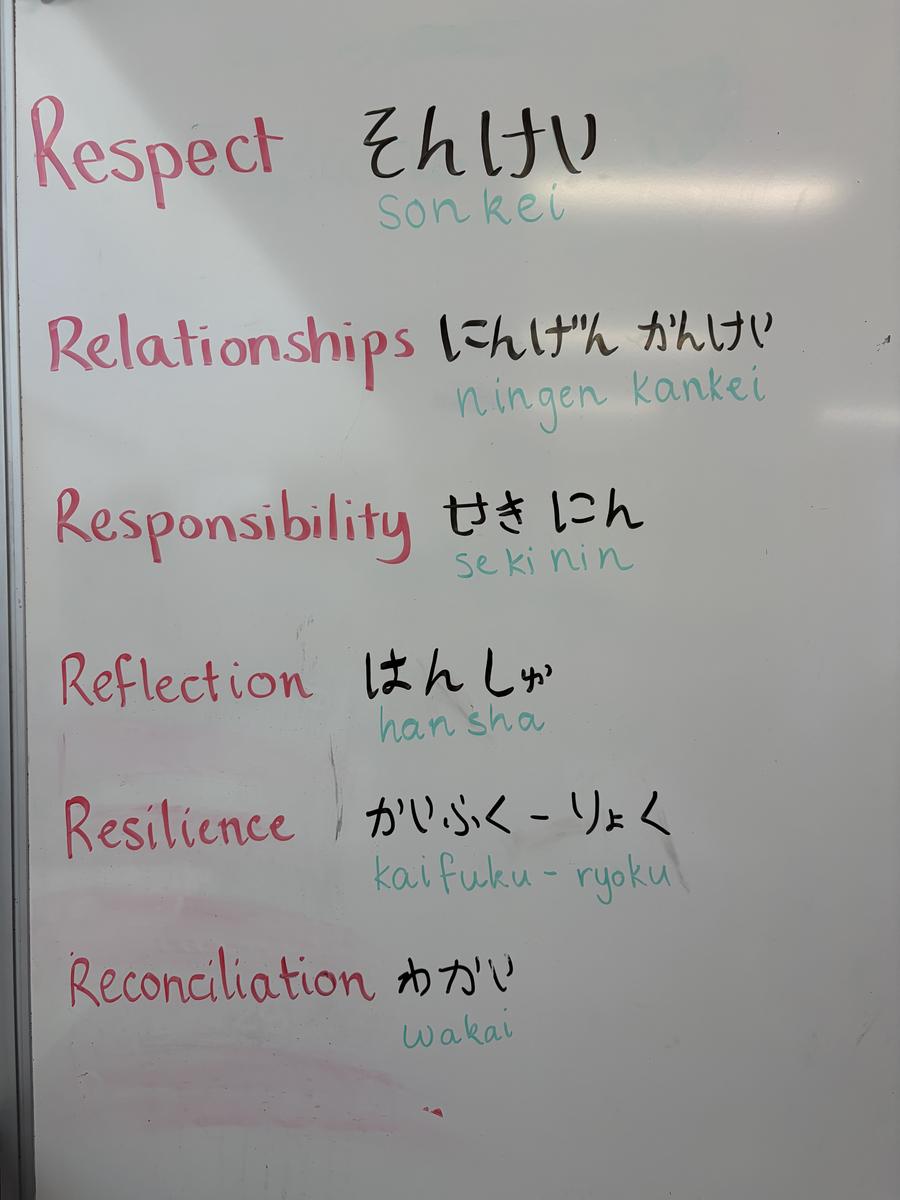 Respect そんけい
sonkei
Relationships にんげん かんけい
ningen kankei
Responsibility せきにん
sekinin
Reflection はんしゃ
hansha
Resilience かいふく - りょく
kaifuku - ryoku
Reconciliation わかい
wakai